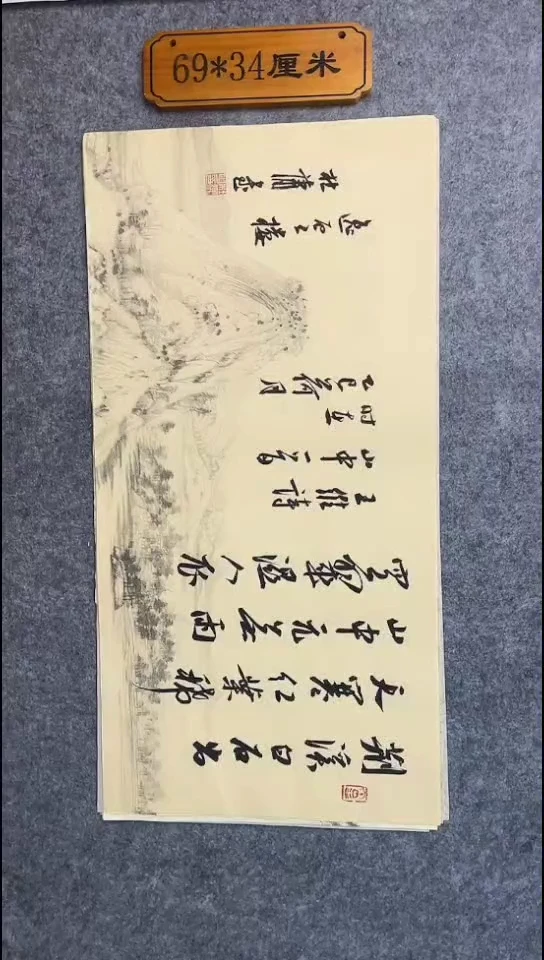 69*34厘米
荆溪白石出
天寒红葉稀
山中元無雨
空翠湿人衣
王維詩
山中一首
时在
乙巳荷月